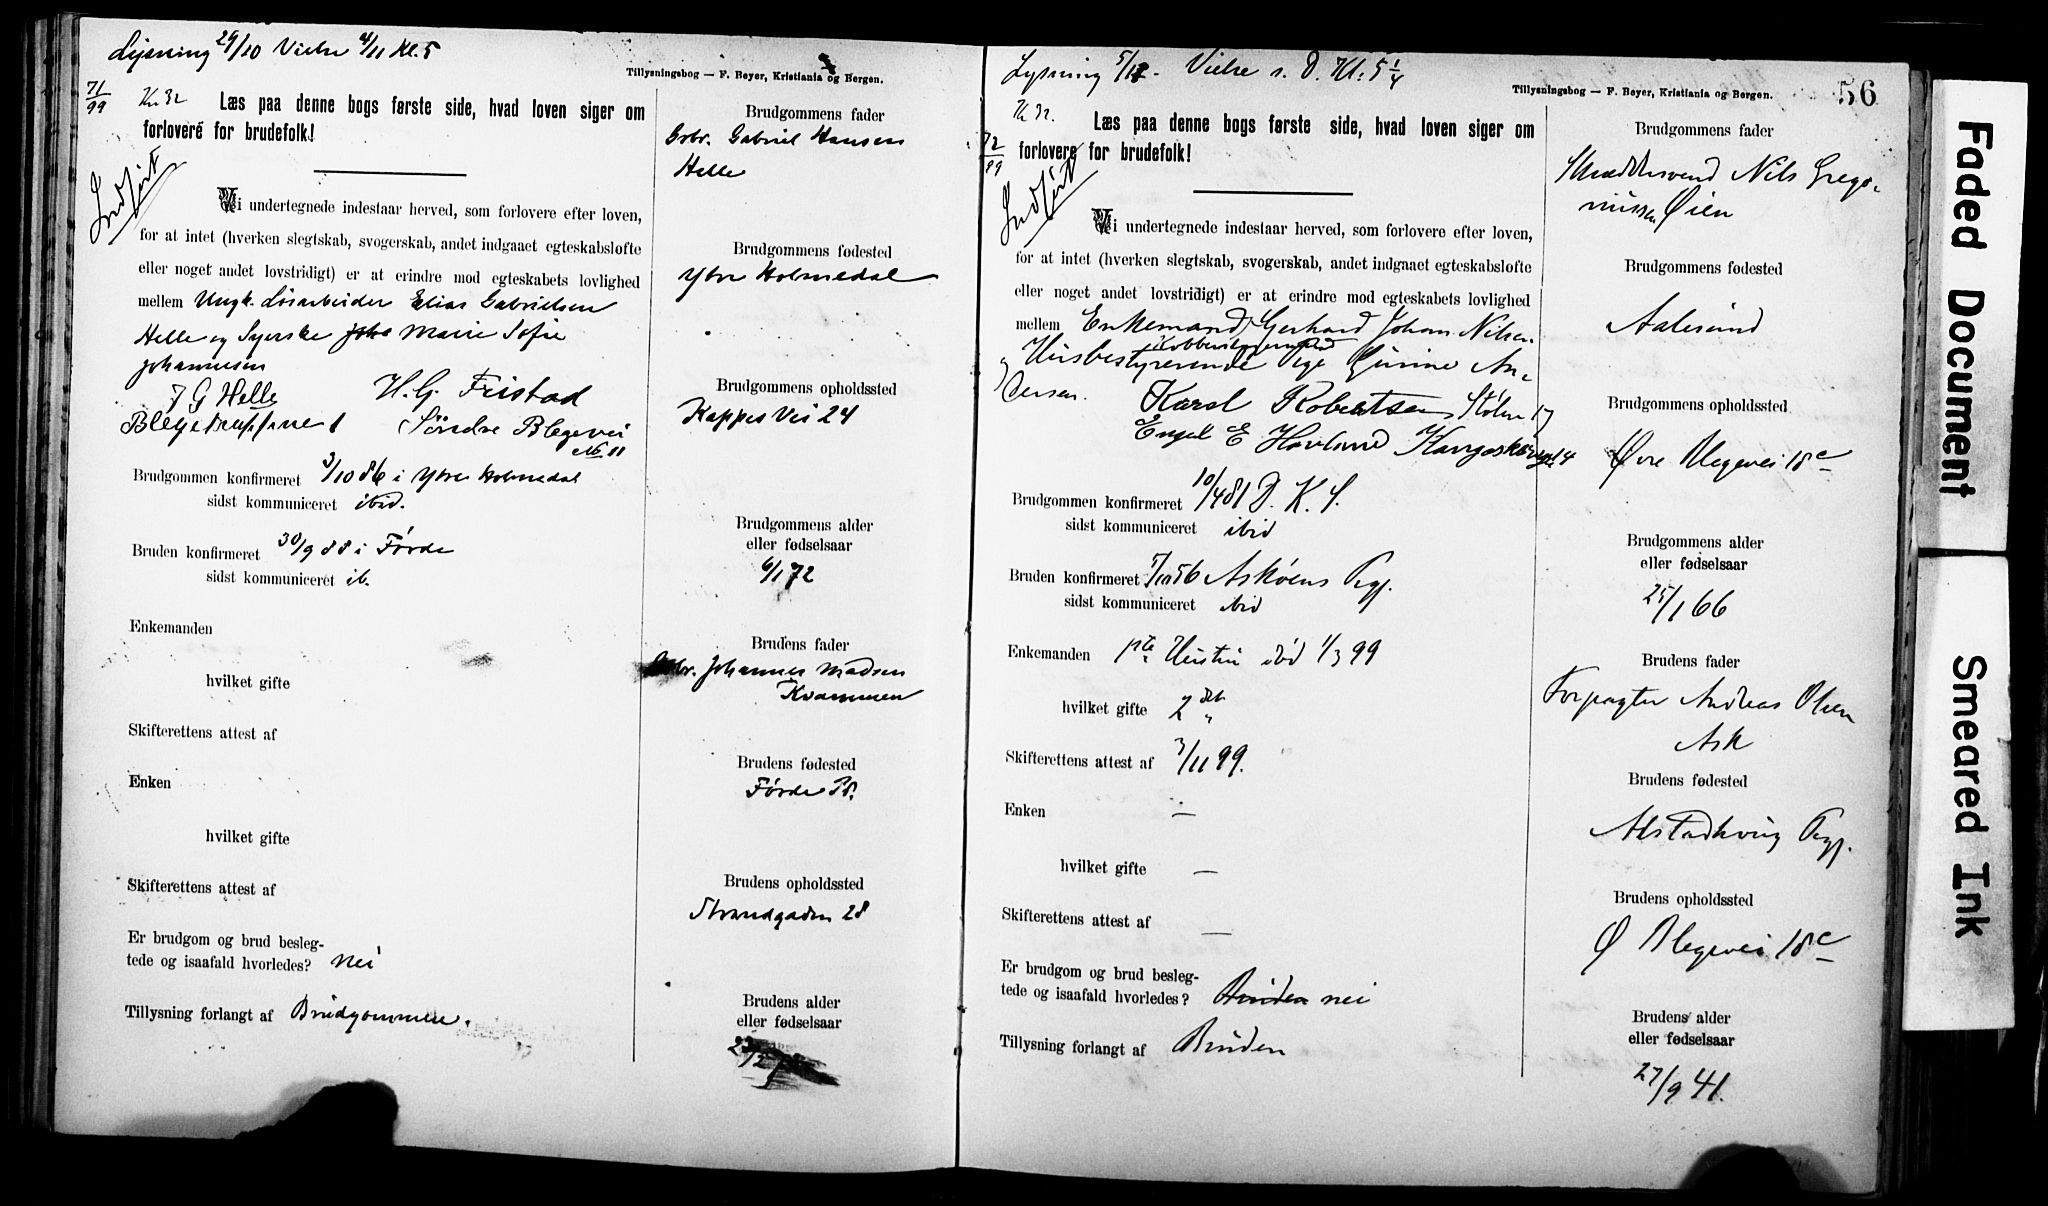 Lysning 29/10 Vielse 4/11 Kl. 5
Tillysningsbog — F. Beyer, Kristiania og Bergen.
71/99
Læs paa denne bogs første side, hvad loven siger om
forlovere for brudefolk!
Indført
Vi undertegnede indestaar herved, som forlovere efter loven,
for at intet (hverken slegtskab, svogerskab, andet indgaaet egteskabsløfte
eller noget andet lovstridigt) er at erindre mod egteskabets lovlighed
mellem Ungk. Løsarbeider Elias Gabrielsen
Helle og Syerske Marie Sofie
Johannesen
J G Helle H. G. Fristad
Søndre Blegevei
No 11
Brudgommen konfirmeret 3/10 86 i Ytre Holmedal
sidst kommuniceret ibid.
Bruden konfirmeret 30/9 88 i Førde
sidst kommuniceret ib.
Enkemanden
hvilket gifte
Skifterettens attest af
Enken
hvilket gifte
Skifterettens attest af
Er brudgom og brud besleg-
tede og isaafald hvorledes? nei
Tillysning forlangt af Brudgommen.
Brudgommens fader
Gbr. Gabriel Hansen
Helle
Brudgommens fødested
Ytre Holmedal
Brudgommens opholdssted
Kappes Vei 24
Brudgommens alder
eller fødselsaar
6/1 72
Brudens fader
Gbr. Johannes Madsen
Kvammen
Brudens fødested
Førde Pr.
Brudens opholdssted
Strandgaden 28
Brudens alder
eller fødselsaar
Lysning 5/11. Vielse s. D. Kl. 5 1/4
Tillysningsbog — F. Beyer, Kristiania og Bergen.
56
72/99
Læs paa denne bogs første side, hvad loven siger om
forlovere for brudefolk!
Indført
Vi undertegnede indestaar herved, som forlovere efter loven,
for at intet (hverken slegtskab, svogerskab, andet indgaaet egteskabsløfte
eller noget andet lovstridigt) er at erindre mod egteskabets lovlighed
mellem Enkemand Gerhard Johan Nilsen
og Husbestyrerinde Pige Gurine An-
dersen.
Karol Robertsen Stølen 17
Engel E Havland
Brudgommen konfirmeret 10/4 81 D. K. S.
sidst kommuniceret ibid
Bruden konfirmeret 5/10 56 Askøens Pgj.
sidst kommuniceret ibid
Enkemanden Hustru død 1/3 99
hvilket gifte 2det
Skifterettens attest af 3/11 99.
Enken —
hvilket gifte —
Skifterettens attest af —
Er brudgom og brud besleg-
tede og isaafald hvorledes? Bruden nei
Tillysning forlangt af Bruden
Brudgommens fader
Skræddersvend Nils Grego-
riussen Øien
Brudgommens fødested
Aalesund
Brudgommens opholdssted
Øvre Blegevei 18c
Brudgommens alder
eller fødselsaar
25/1 66
Brudens fader
Forpagter Andreas Olsen
Ask
Brudens fødested
Alstadhoug Pgj.
Brudens opholdssted
Ø Blegevei 18c
Brudens alder
eller fødselsaar
27/9 41.
Faded Document
Smeared Ink